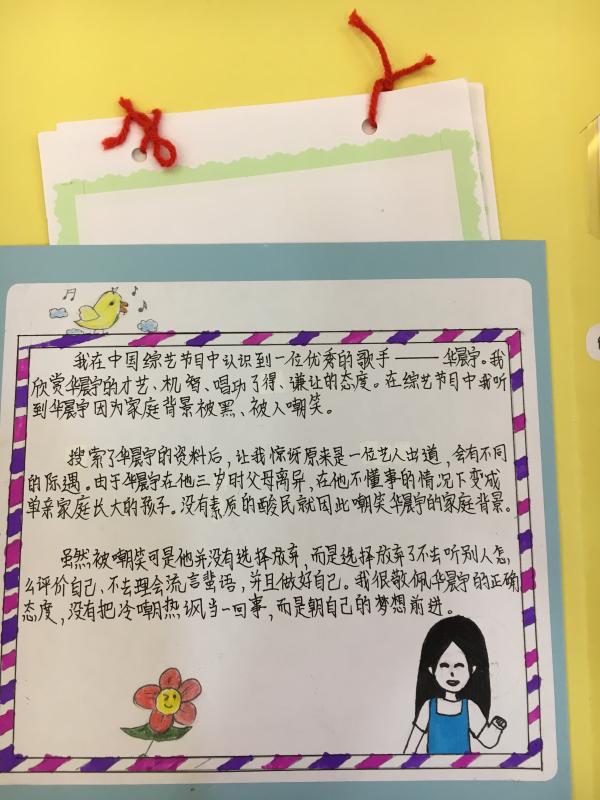 我在中国综艺节目中认识到一位优秀的歌手——华晨宇。我
欣赏华晨宇的才艺、机智、唱功了得、谦让的态度。在综艺节目中我听
到华晨宇因为家庭背景被黑、被人嘲笑。
搜索了华晨宇的资料后，让我惊讶原来是一位艺人出道，会有不同
的际遇。由于华晨宇在他三岁时父母离异，在他不懂事的情况下变成
单亲家庭长大的孩子。没有素质的酸民就因此嘲笑华晨宇的家庭背景。
虽然被嘲笑可是他并没有选择放弃，而是选择放弃了不去听别人怎
么评价自己、不去理会流言蜚语，并且做好自己。我很敬佩华晨宇的正确
态度，没有把冷嘲热讽当一回事，而是朝自己的梦想前进。